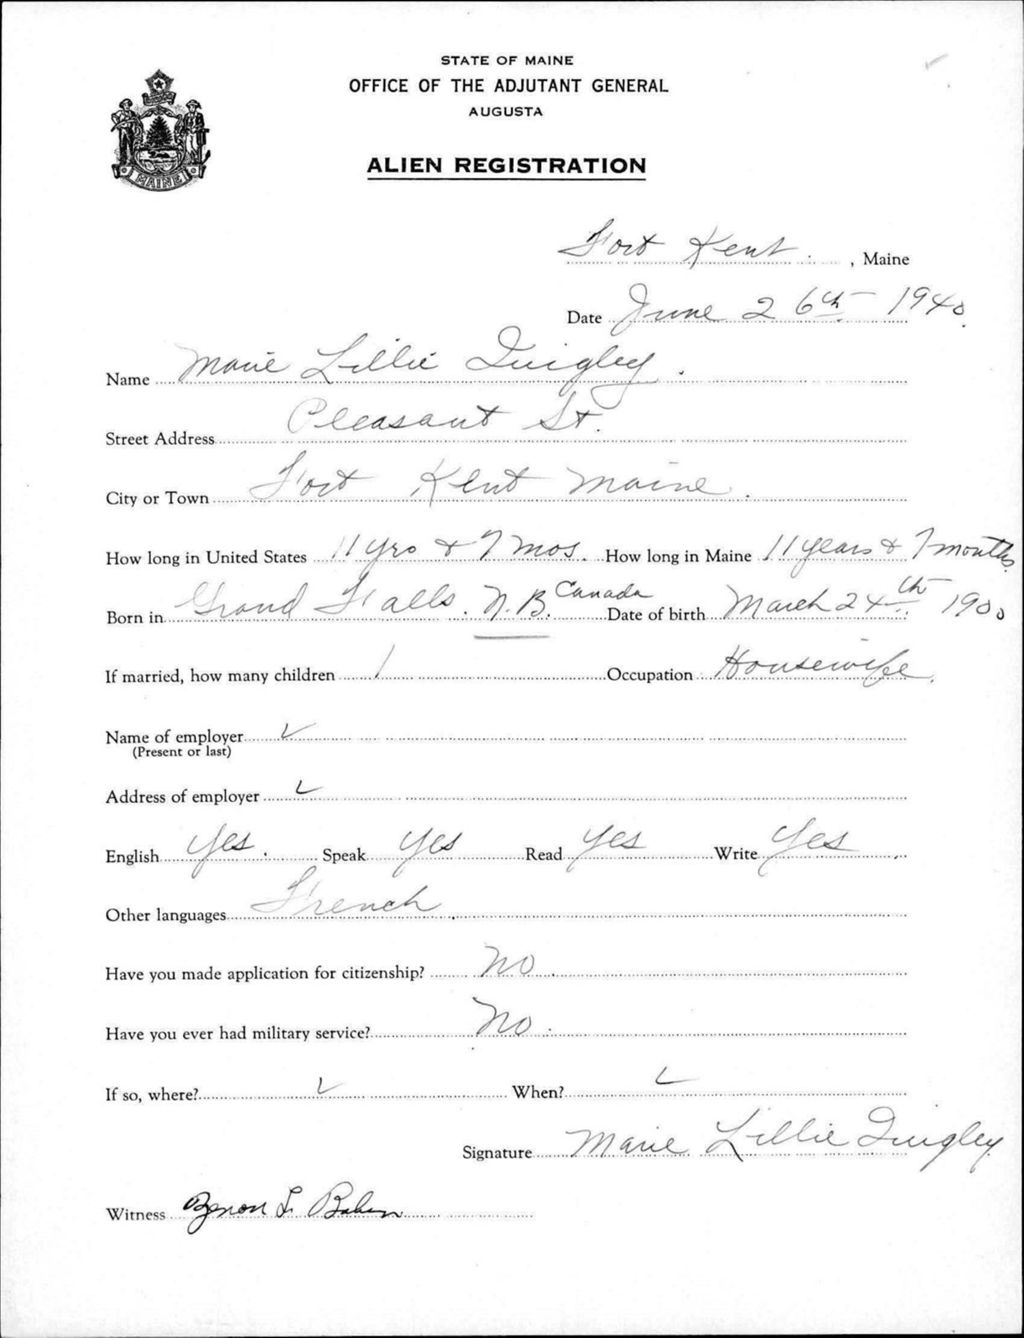 STATE OF MAINE
OFFICE OF THE ADJUTANT GENERAL
AUGUSTA
MAINE
ALIEN REGISTRATION
Fort Kent, Maine
Date June 26th 1940.
Name Marie Lillie Quigley.
Street Address Pleasant St.
City or Town Fort Kent Maine.
How long in United States 11 yrs & 7 mos. How long in Maine 11 years & 7 months
Born in Grand Falls. N.B. Canada Date of birth March 24th 1900
If married, how many children 1 Occupation Housewife.
Name of employer ✓
(Present or last)
Address of employer ✓
English Yes. Speak Yes Read Yes Write Yes
Other languages French.
Have you made application for citizenship? No.
Have you ever had military service? No.
If so, where? ✓ When? ✓
Signature Marie Lillie Quigley
Witness Zenon L